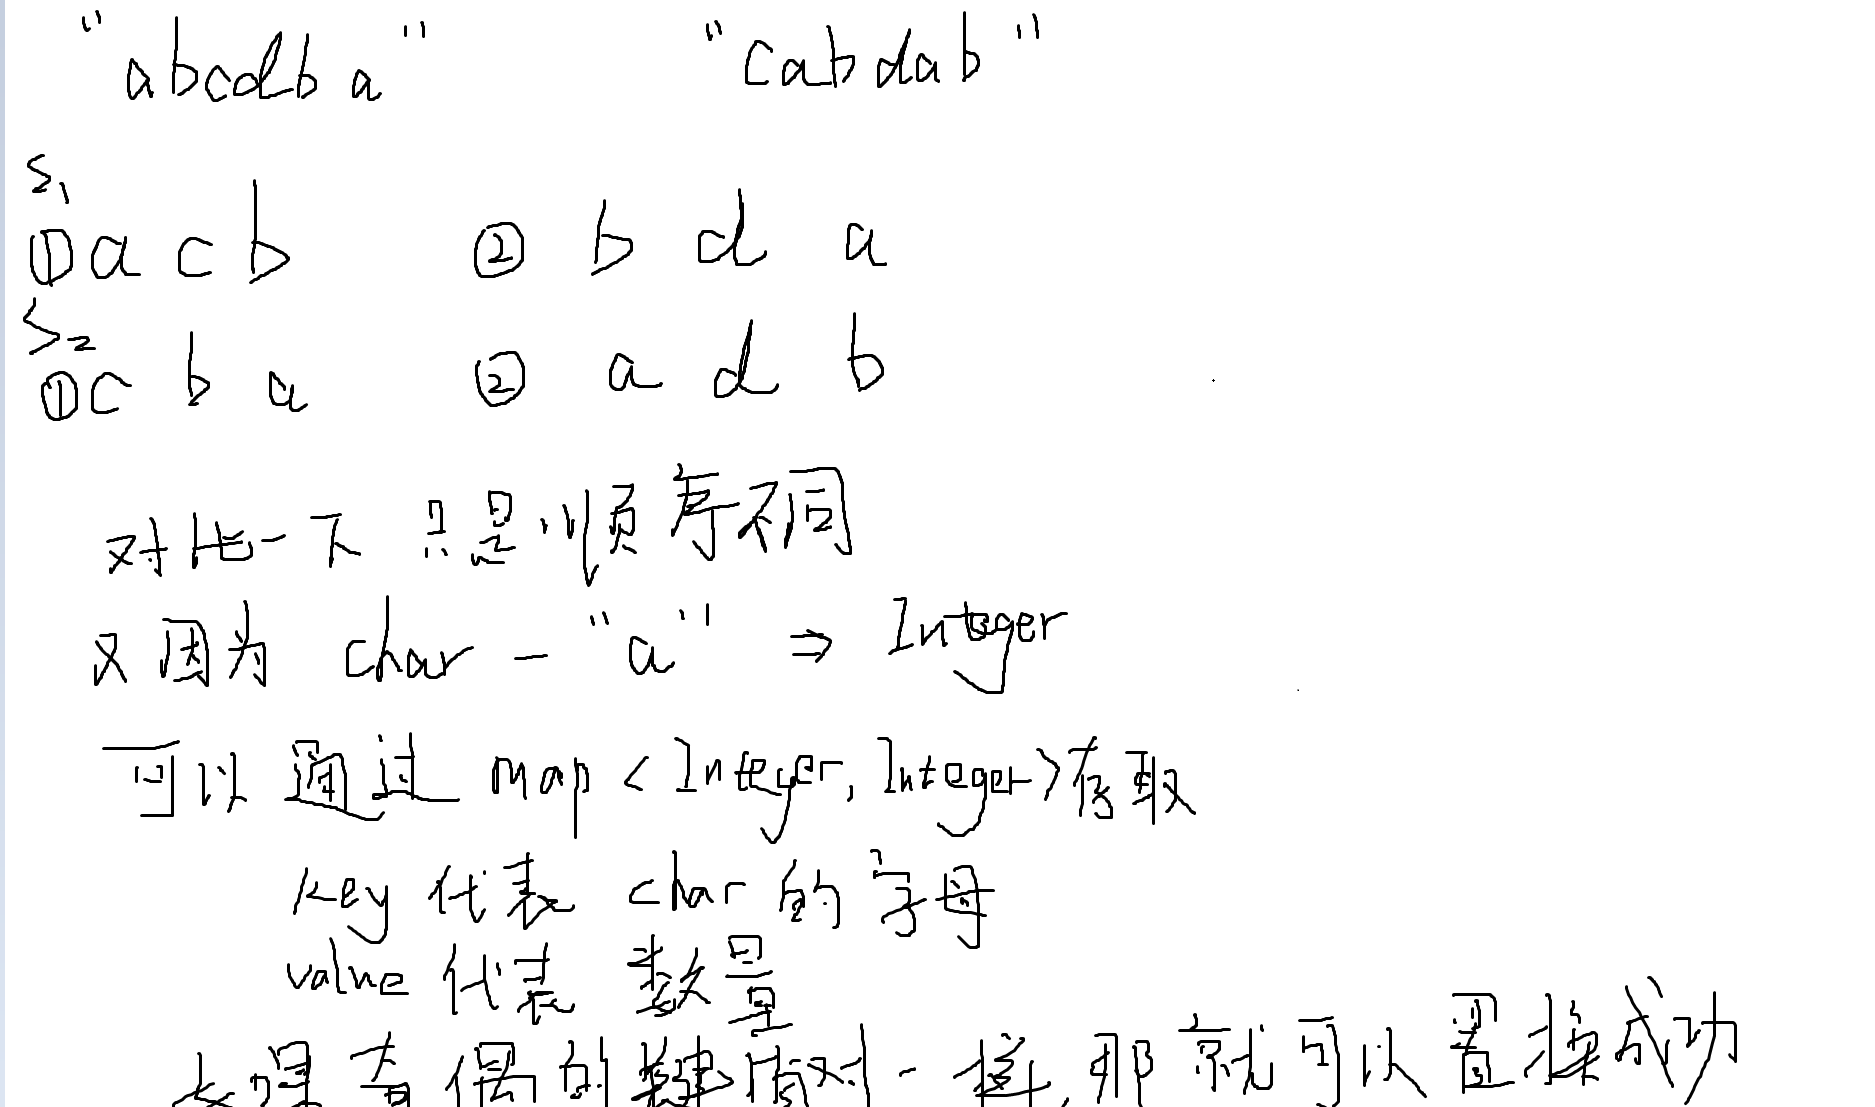 "abcdba" "cabdab"
S1
①a c b ② b d a
S2
①c b a ② a d b
对比一下 只是顺序不同
又因为 char - "a" ⇒ Integer
可以通过 map<Integer, Integer>存取
key 代表 char 的字母
value 代表 数量
如果奇偶的键值对一样,那就可以置换成功